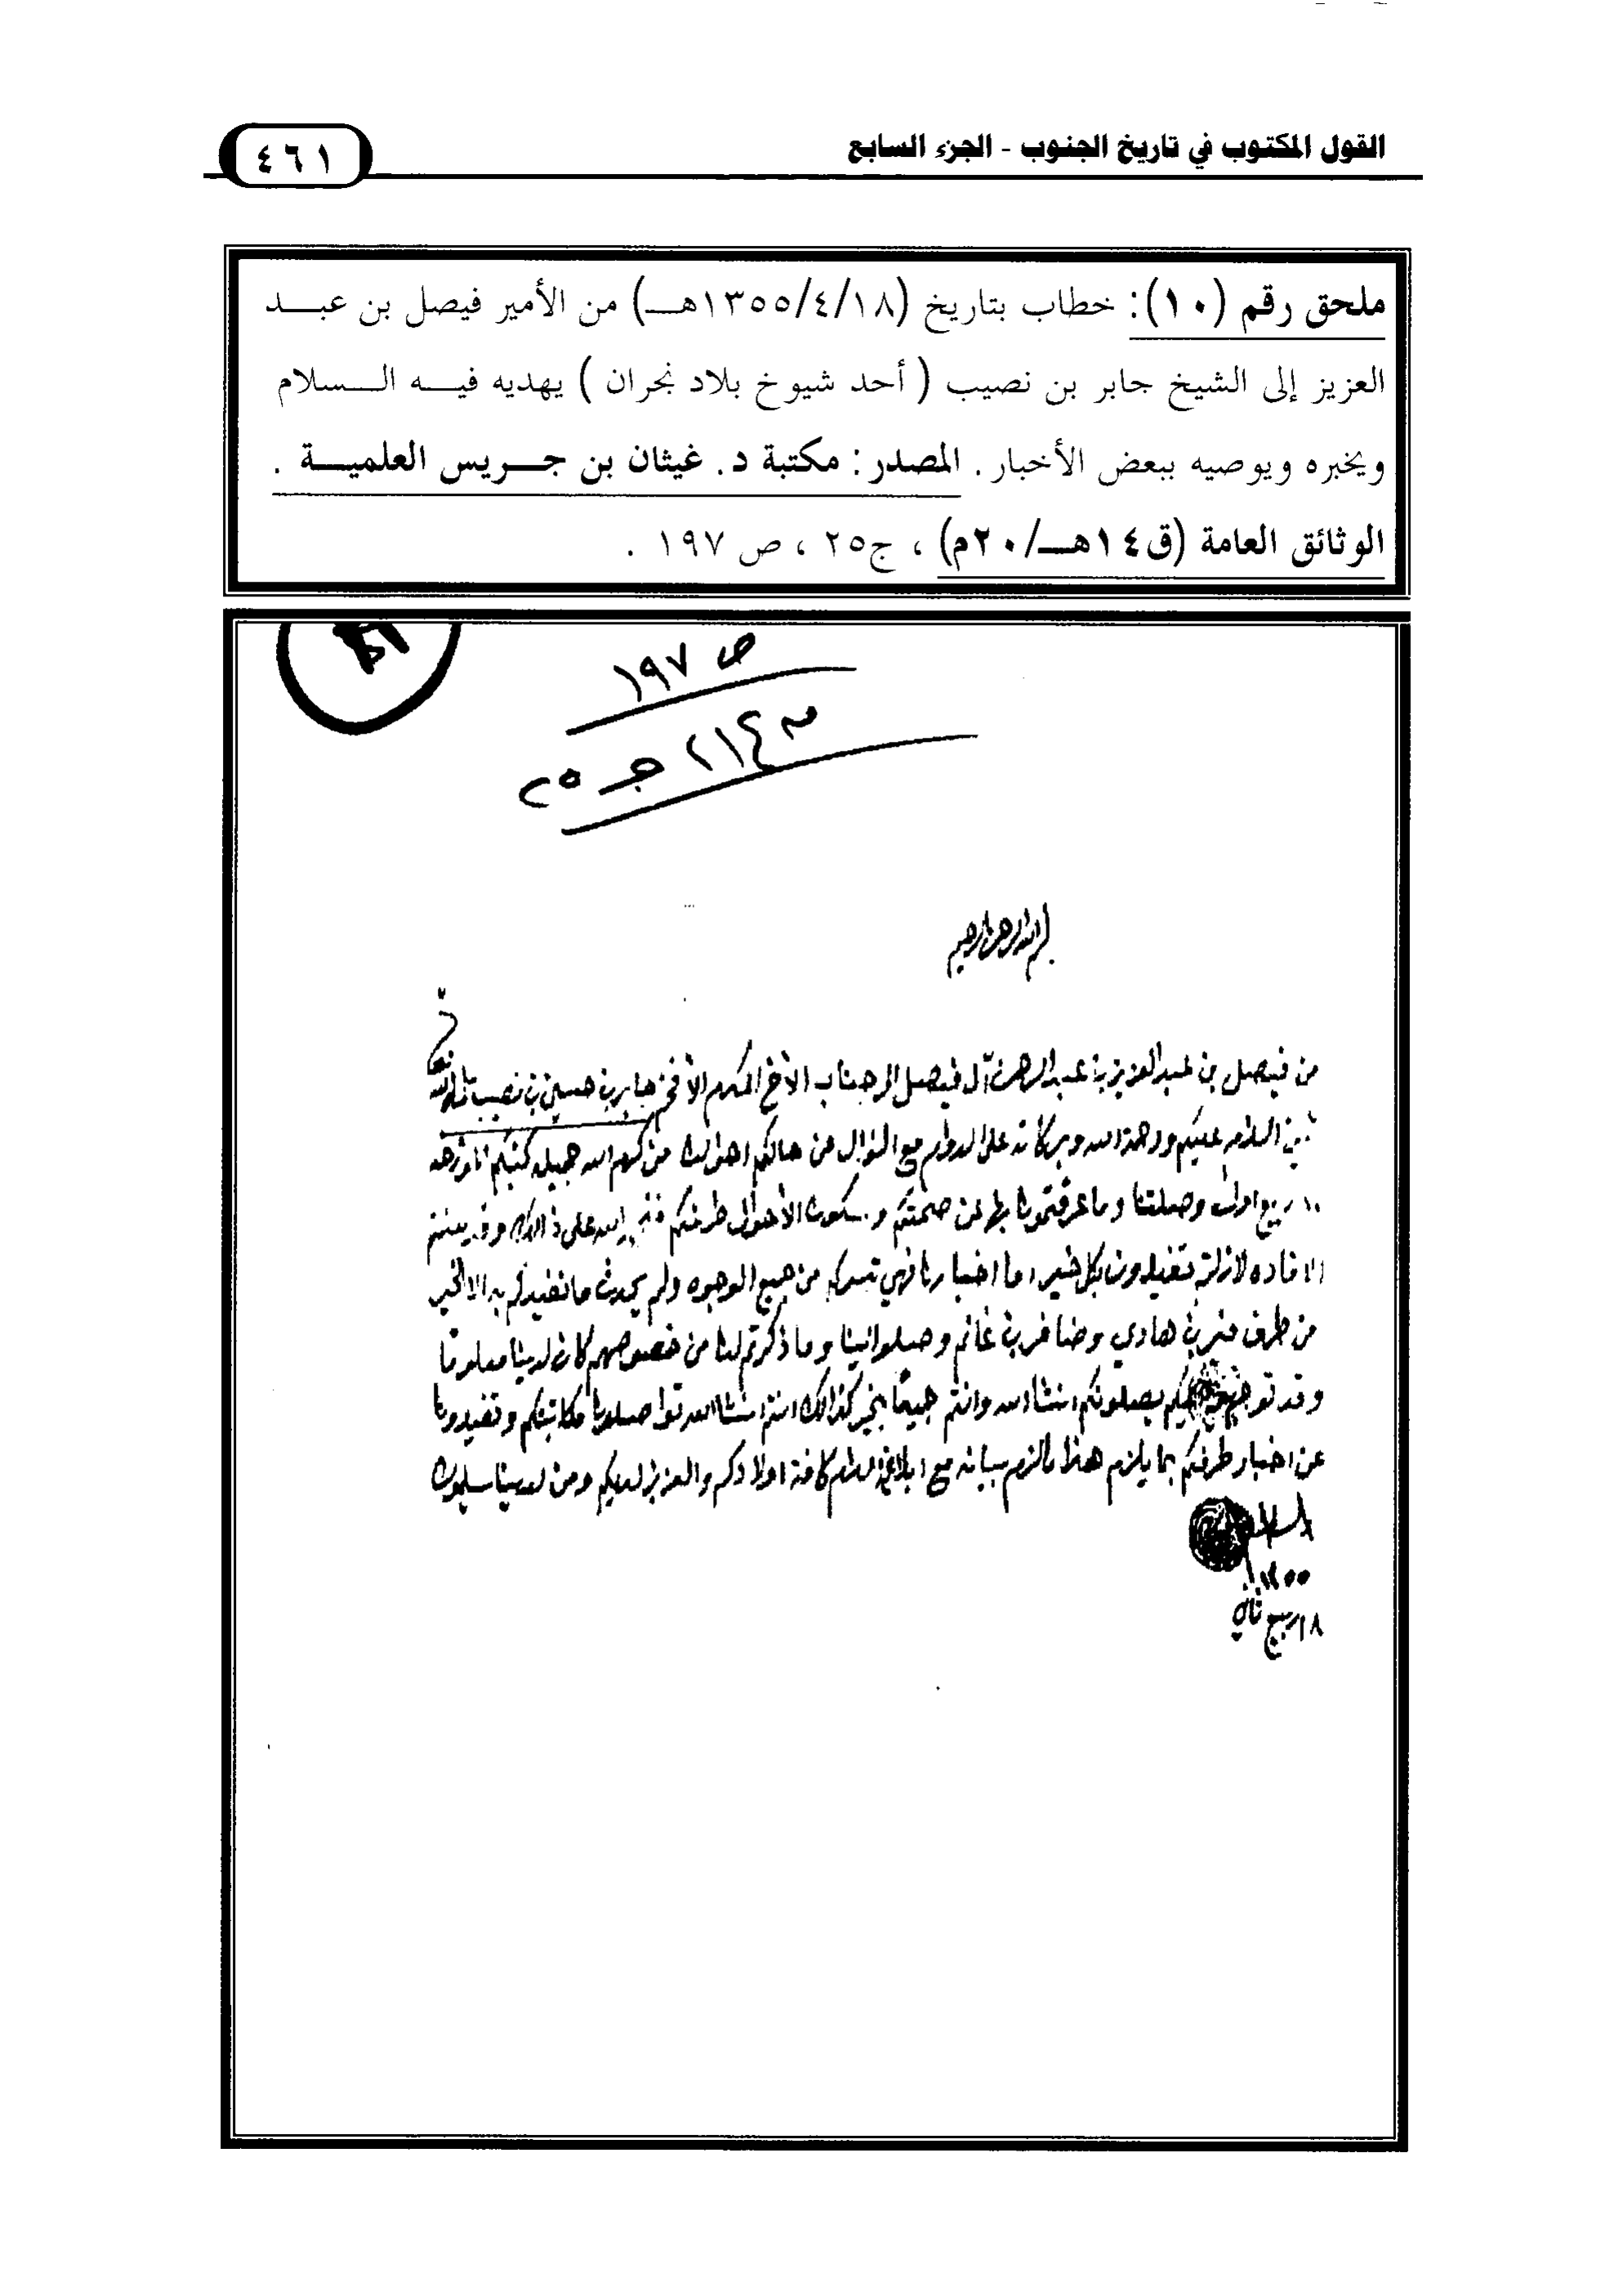 القول المكتوب في تاريخ الجنوب - الجزء السابع
٤٦١
ملحق رقم (١٠): خطاب بتاريخ (١٣٥٥/٤/١٨هـ) من الأمير فيصل بن عبد
العزيز إلى الشيخ جابر بن نصيب ( أحد شيوخ بلاد نجران ) يهديه فيه السلام
ويخبره ويوصيه ببعض الأخبار . المصدر : مكتبة د. غيثان بن جريس العلمية .
الوثائق العامة (ق١٤هـ/٢٠م) ، ج٢٥ ، ص ١٩٧ .
ص ١٩٧
جـ ٢٥
بسم الله الرحمن الرحيم
من فيصل بن عبدالعزيز بن عبدالرحمن آل فيصل الى جناب الأخ المكرم الأفخم جابر بن حسين بن نصيب سلمه الله تعالى
السلام عليكم ورحمة الله وبركاته على الدوام مع السؤال عن حالكم احوالنا من كرم الله جميله كتبكم
١٠ ربيع اول وصلتنا وما عرفتمونا به عن صحتكم وسكون الأحوال طرفكم الله على ذالك
الافاده لازلتم تفيدون بكل خير اما اخبارنا فهي تسركم من جميع الوجوه ولم يحدث ما نفيدكم به الا الخير
من طرف بن هادي وضافر بن غانم وصلوا الينا وما ذكرتم لنا من خصوصهم كان لدينا معلوما
وقد يصلونكم انشاء الله وانتم جميعا بخير كذالك انتم انشاء الله تواصلونا مكاتبتكم وتفيدونا
عن اخبار طرفكم بما يلزم هذا مالزم بيانه مع ابلاغ السلام كافة اولادكم والعزيز لديكم ومن لدينا يسلمون
والسلام
١٣٥٥
١٨ ربيع ثاني